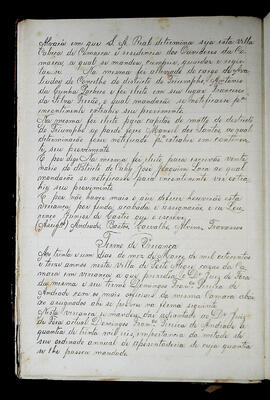 Alvará em que S. A. Real determina seja esta villa
Cabeça de Comarca e residencia dos Ouvidores da Co-
marca, a qual se mandou cumprir, guardar e regis-
tar-se. Na mesma foi alliviado do cargo de
do Conselho do districto de Triumpho, Antonio
da Cunha Pacheco e foi eleito em seu lugar Francisco
da Silva a qual mandarão se notificasse pa
encontinente tirar seu provimento
Na mesma foi eleito para capitão do matto do districto
do Triumpho, o pardo forro Manoel dos Santos, ao qual
determinarão fosse notificado pa tirar em continen-
te, seu provimento.
E por diga: Na mesma foi eleito para escrivão vinte-
nario do districto de Cahy José Joaquim Lara ao qual
mandarão se notificasse para encontinente vir extra-
hir seu provimento
E por não haver mais o que deferir houverão esta
vereança por finda, acabada e assignarão, e eu Lou-
renço Junior de Castro que o escrevi.
Andrade Bastos Carvalho Alvim Travassos
Termo de Vereança
Aos trinta e um dias do mez de Março de mil oitocentos
e treze annos nesta Villa de Porto Alegre, caza da Ca-
mara em vereança que prezidio o Dr Juiz de Fora
da mesma e seu termo Domingos Franco Pereira de
Andrade com os mais officiaes da mesma Camara abaixo
assignados ahi se proveu na fórma seguinte
Nesta vereança se mandou dar mandado ao Dr Juiz
de Fora actual Domingos Franco Pereira de Andrade da
quantia de trinta mil reis importancia da metade do
seu ordenado annual de aposentadoria de cuja quantia
se lhe passou mandado